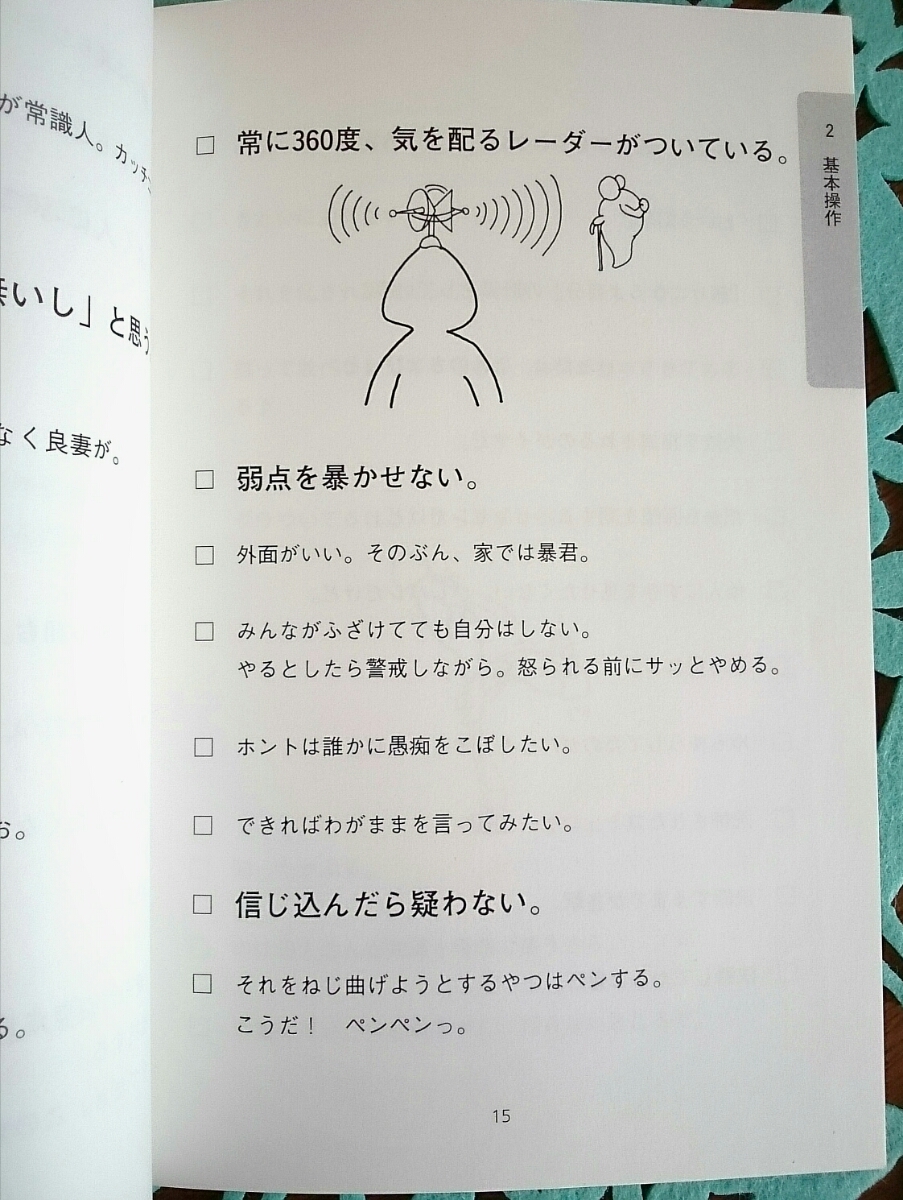 が常識人。カッチ
いし」と思う
なく良妻が。
お。
る。
2 基本操作
□ 常に360度、気を配るレーダーがついている。
□ 弱点を暴かせない。
□ 外面がいい。そのぶん、家では暴君。
□ みんながふざけてても自分はしない。
やるとしたら警戒しながら。怒られる前にサッとやめる。
□ ホントは誰かに愚痴をこぼしたい。
□ できればわがままを言ってみたい。
□ 信じ込んだら疑わない。
□ それをねじ曲げようとするやつはペンする。
こうだ！　ペンペンっ。
15